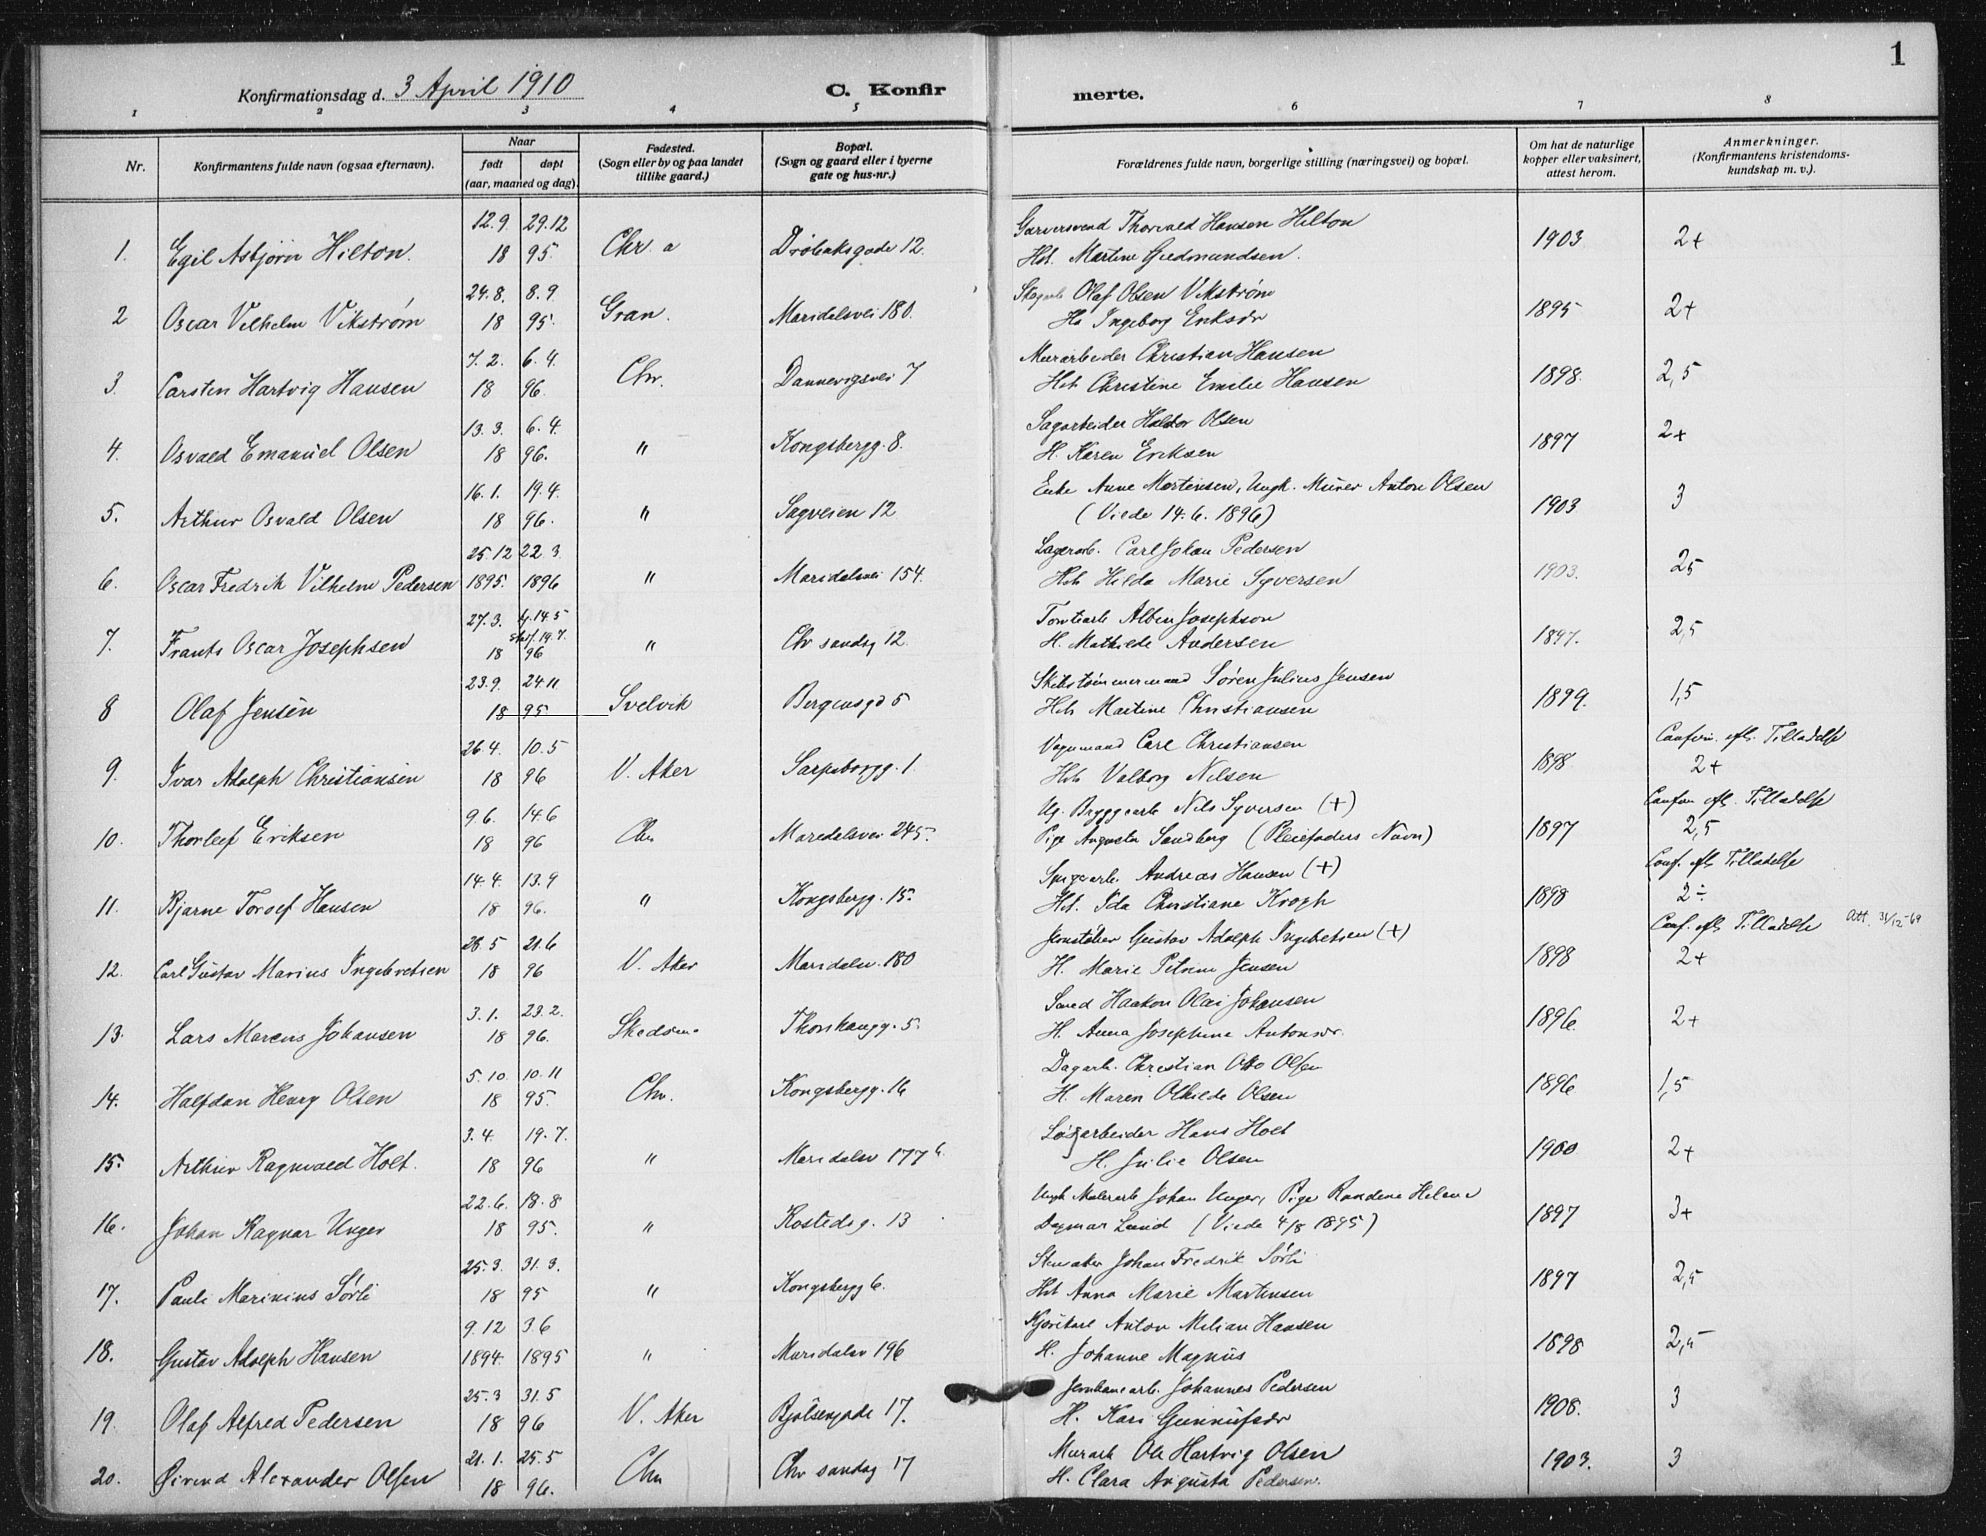 1
Konfirmationsdag d. 3 April 1910 C. Konfir merte.
1 2 3 4 5 6 7 8
Nr. Konfirmantens fulde navn (ogsaa efternavn). Naar født døpt (aar, maaned og dag). Fødested. (Sogn eller by og paa landet tillike gaard.) Bopæl. (Sogn og gaard eller i byerne gate og hus-nr.) Forældrenes fulde navn, borgerlige stilling (næringsvei) og bopæl. Om hat de naturlige kopper eller vaksinert, attest herom. Anmerkninger. (Konfirmantens kristendomskundskap m. v.).
12.9 29.12 Garversvend Thorvald Hansen Hilton
1. Egil Asbjørn Hilton. 18 95. Chr. a Drøbaksgade 12. Hst. Martine Gudmundsen. 1903 2+
24.8. 8.9. Olaf Olsen Vikstrøm
2 Oscar Vilhelm Vikstrøm 18 95. Gran. Maridalsvei 180. Hs Ingeborg Eriksdr 1895 2+
7.2. 6.4. Murarbeider Christian Hansen
3. Carsten Hartvig Hansen 18 96. Chr. Dannevigsvei 7 Hst Christine Emilie Hansen 1898. 2,5
13.3. 6.4. Sagarbeider Haldor Olsen
4. Osvald Emanuel Olsen 18 96. " Kongsbergg. 8. H. Karen Eriksen 1897 2+
16.1. 19.4. Enke Anne Mortensen, Ungk. Murer Anton Olsen
5. Arthur Osvald Olsen 18 96. " Sagveien 12 (Viede 14.6.1896) 1903 3
25.12 22.3. Lagerarb. Carl Johan Pedersen
6. Oscar Fredrik Vilhelm Pedersen 1895. 1896 " Maridalsvei 154. Hst Hilda Marie Syversen 1903. 25
27.3. hj. 14.5 stadf. 19.7. Tomtearb Albin Josephson
7. Frants Oscar Josephsen 18 96 " Chr sandsg 12. H. Mathilde Andersen 1897. 2,5
23.9. 24.11 Skibstømmermand Søren Julius Jensen
8 Olaf Jensen 18 95 Svelvik Bergensgd 5 Hst Martine Christiansen 1899. 1,5
26.4. 10.5 Vognmand Carl Christiansen Confirm. eft. Tilladelse
9. Ivar Adolph Christiansen 18 96 V. Aker Sarpsborgg. 1. Hst Valborg Nilsen 1898 2+
9.6. 14.6 Ug. Byggearb Nils Syversen (+) Confir eft. Tilladelse
10. Thorleif Eriksen 18 96 Chr Maridalsvei 245. Pige Augusta Sandberg (Pleiefaders Navn) 1897 2,5
14.4. 13.9 Spigerarb. Andreas Hansen (+) Conf. eft Tilladelse
11. Bjarne Toralf Hansen 18 96. " Kongsbergg. 15. Hst. Ida Christiane Krogh 1898 2÷
28.5 21.6 Jernstøber Gustav Adolph Ingebretsen (+) Conf. eft Tilladelse Att. 31/12-69
12. Carl Gustav Marius Ingebretsen 18 96 V. Aker Maridalsv. 180 H. Marie Petrine Jensen 1898 2+
3.1. 23.2. Smed Haakon Olai Johansen
13. Lars Marcus Johansen 18 96. Skedsmo Thorshaugg. 5. H. Anna Josephine Antonsdr. 1896. 2+
5.10. 10.11 Dagarb. Christian Otto Olsen
14. Halfdan Henry Olsen 18 95. Chr. Kongsbergg. 16 H. Maren Othilde Olsen 1896 1,5
3.4. 19.7. Løsarbeider Hans Holt
15. Arthur Ragnvald Holt. 18 96 " Maridalsv 177 b. H. Julie Olsen 1900 2+
22.6. 18.8 Ungk Malerarb Johan Unger, Pige Randine Helene
16. Johan Ragnar Unger 18 95. " 13 Dagmar Lund (Viede 4/8 1895) 1897 3+
25.3. 31.3. Johan Fredrik Sørli
17. Pauli Marinius Sørli 18 95 " Kongsbergg 6. Hst Anna Marie Martinsen 1897 2,5
9.12 3.6 Kjørekarl Anton Milian Hansen
18. Gustav Adolph Hansen 1894. 1895 " Maridalsv 196 H. Johanne Magnus 1898 2,5
25.3 31.5 Jernbanearb. Johannes Pedersen
19. Olaf Alfred Pedersen 18 96 V. Aker Bjølsengade 17. H. Kari Gunnufsdr 1908. 3
21.1. 25.5 Murarb Ole Hartvig Olsen
20. Øivind Alexander Olsen 18 96. Chr Chr sandsg 17 H. Clara Augusta Pedersen. 1903. 3